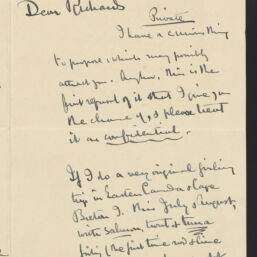 Dear Richards
Private
I have a curious thing
to propose, which may possibly
attract you. Anyhow, this is the
first refusal of it that I give you
the chance of, & please treat
it as confidential.
If I do a very original fishing
trip in Eastern Canada & Cape
Breton I. this July & August,
with salmon, trout & tuna
fishing (the first time rod & line